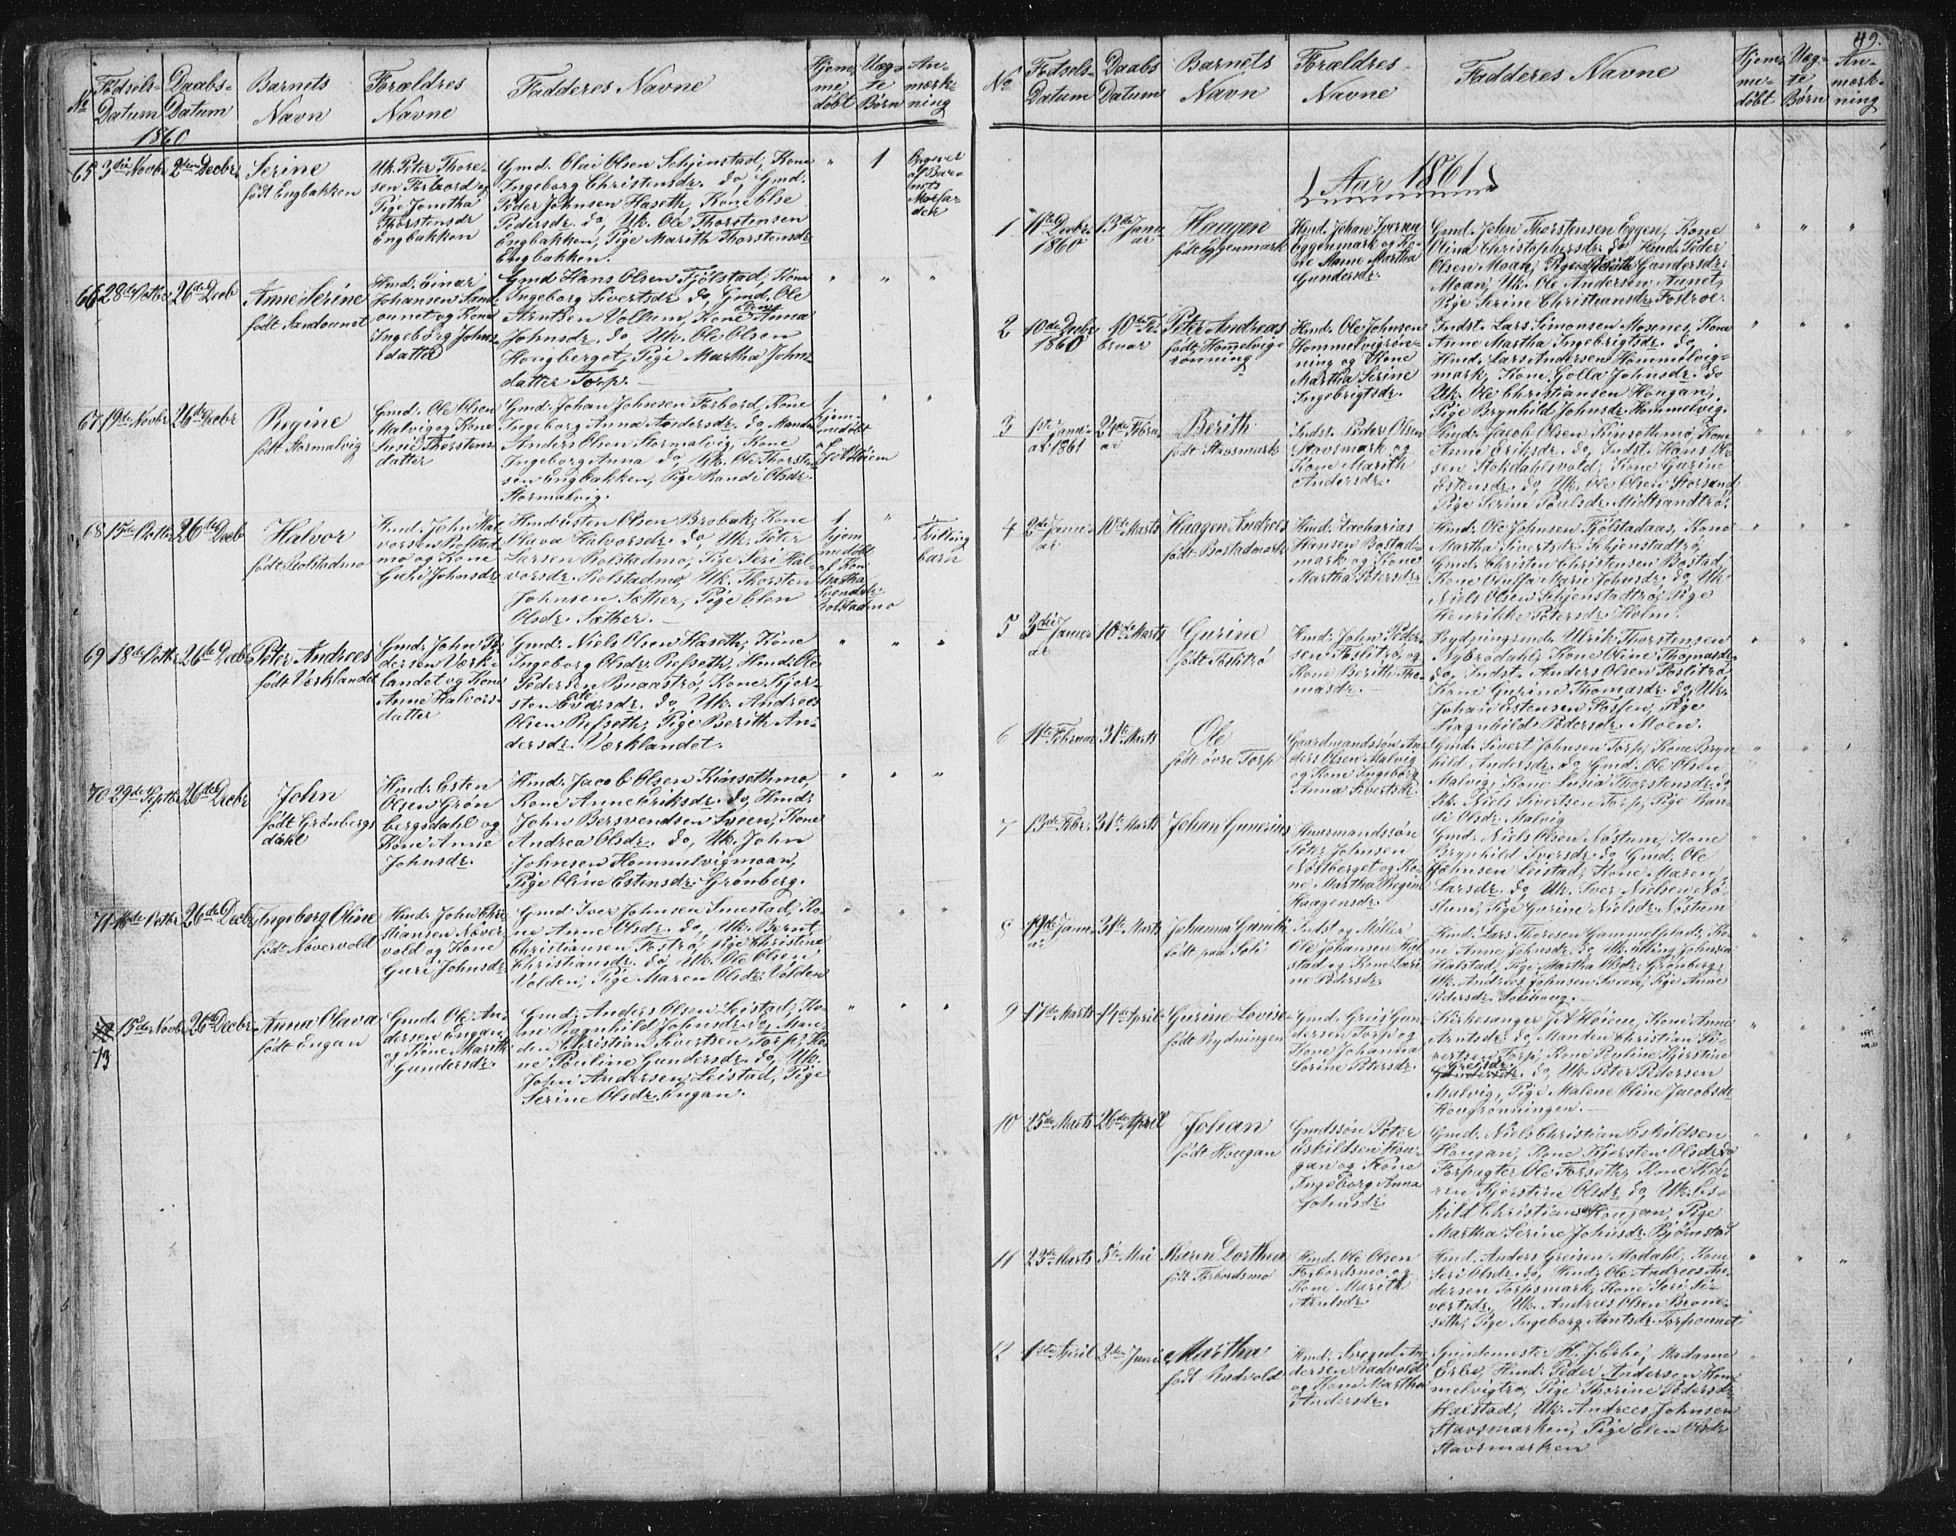 49.
No
Fødsels-
Datum
Daabs-
Datum
Barnets
Navn
Forældres
Navne
Fadderes Navne
Hjem-
me
døbt
Uæg-
te
Børn
An-
mærk-
ning
1860
65 3die Novbr 2den Decbr
Serine
født Engbakken
Uk. Peter Thore-
sen Forbord og
Pige Jonetha
Thorstensdr
Engbakken
Gmd. Olai Olsen Schjenstad, Kone
Ingeborg Christensdr. do, Gmd.
Peder Johnsen Haseth, Kone Else
Pedersdr. do, Uk. Ole Thorstensen
Engbakken, Pige Marith Thorstensdr
Engbakken.
" 1
Angiver
af Bar-
nets
66 28de Octbr 26de Decb
Anne Serine
født Sandounet
Hmd. Einar
Johansen Sand-
ounet og Kone
Ingeborg Johns-
datter
Gmd. Hans Olsen Fjølstad, Kone
Ingeborg Sivertsdr. do, Gmd. Ole
Arntsen Vollem, Kone Anna
Johnsdr. do, Uk. Ole Olsen
Hougberget, Pige Martha Johns-
datter Torp.
" " "
67 19de Novbr 26de Decbr
Regine
født Stormalvig
Gmd. Ole Olsen
Malvig og Kone
Lusie Thorstens-
datter
Gmd. Johan Johnsen Forbord, Kone
Ingeborg Anna Andersdr. do, Manden
Anders Olsen Stormalvig, Kone
Ingeborg Anna do, Uk. Ole Thorsten-
sen Engbakken, Pige Randi Olsdr.
Stormalvig.
1
hjem-
medøbt
af
68 15de Octbr 26de Decb
Halvor
født Rolstadmo
Hmd. John Hal-
vorsen Rolstad-
mo og Kone
Guri Johnsdr
Hmd. Esten Olsen Brobak, Kone
Hava Halvorsdr. do, Uk. Peter
Larsen Rolstadmo, Pige Seri Hal-
vorsdr. Rolstadmo, Uk. Thorsten
Johnsen Sæther, Pige Elen
Olsdr. Sæther.
1
hjem
medøbt
af Kone
Martha
Svendsdr.
Rolstadmo
"
Tvilling
barn
69 18de Octbr 26de Decb
Peter Andreas
født Værklandet
Gmd. John Pe-
dersen Værk-
landet og Kone
Anne Halvors-
datter
Gmd. Niels Olsen Haseth, Kone
Ingeborg Olsdr. Refseth, Hmd. Ole
Pedersen Buaastrø, Kone Kjer-
sten Evarsdr. do, Uk. Andreas
Olsen Refseth, Pige Berith An-
dersdr. Værklandet.
" " "
70 29de Septbr 26de Decbr
John
født Grønbergs
dahl
Hmd. Esten
Olsen Grøn
bergsdahl og
Kone Anne
Johnsdr.
Hmd. Jacob Olsen Kinsethmo
Kone Anne Eriksdr. do, Hmd.
John Bersvendsen Sveen, Kone
Andrea Olsdr. do, Uk. John
Johnsen Hommelvigmoan,
Pige Oline Estensdr. Grønberg.
" " "
71 26de Decb
Ingeborg Oline
født Nøvervold
Hmd. John Chri-
stiansen Nøver
vold og Kone
Guri Johnsdr.
Gmd. Iver Johnsen Smestad, Ko-
ne Anne Olsdr. do, Uk. Bernt
Christiansen Fostrø, Pige Christine
Christiansdr. do, Uk. Ole Olsen
Volden, Pige Maren Olsdr. Volden
" " "
73 15de Novbr 26de Decbr
Anna Olava
født Engan
Gmd. Ole An-
dersen Engan
og Kone Marith
Gundersdr.
Gmd. Anders Olsen Leistad, Ko-
ne Ragnhild Johnsdr. do, Man-
den Christian Sivertsen Torp, Ko-
ne Pouline Gundersdr. do, Uk.
John Andersen Leistad, Pige
Serine Olsdr. Engan.
" " "
No
Fødsels
Datum
Daabs
Datum
Barnets
Navn
Forældres
Navne
Fadderes Navne
Hjem-
me-
døbt
Uæg-
te
Børn
An-
mærk-
ning
Aar 1861
1 11te Decbr 1860
13de Janu
ar
Haagen
født Eggenmark
Hmd. Johan Iversen
Eggenmark og Ko-
ne Anne Martha
Gundersdr.
Gmd. John Thorstensen Eggen, Kone
Olina Christophersdr. do, Hmd. Peder
Olsen Moan, Pige Berith Gundersdr.
Moan, Uk. Ole Andersen Aunet,
Pige Serine Christiansdr. Fostroe.
" " "
2 10de Decbr 1860
10de Fe-
bruar
Peter Andreas
født Homelvig-
rønning
Hmd. Ole Johnsen
Hommelvigrøn-
ning og Kone
Martha Serine
Ingebrigtsdr.
Indst. Lars Simonsen Mosenes, Kone
Anne Martha Ingebrigtsdr. do,
Hmd. Lars Andersen Hommelvig-
mark, Kone Golla Johnsdr. do
Uk. Ole Christiansen Hougan,
Pige Brynhild Johnsdr. Hommelvig.
" " "
3 1ste Janu-
ar 1861
24de Febru
ar
Berith
født Stavsmark
Indst. Peder Olsen
Stavsmark og
Kone Marith
Andersdr.
Hmd. Jacob Olsen Kinsethmo, Kone
Anne Eriksdr. do, Indst. Hans Ol-
sen Stokdahlsvold, Kone Gurine
Estensdr. do, Uk. Ole Olsen Storsand
Pige Serine Poulsdr. Midtsandtrø.
" " "
4 2den Janu-
ar
10de Marts
Haagen Andreas
født Bostadmark
Hmd. Zacharias
Hansen Bostad-
mark og Kone
Martha Petersdr.
Hmd. Ole Johnsen Fjølstadaas, Kone
Martha Sivertsdr. Schjenstadtrø,
Gmd. Christen Christensen Bostad,
Kone Oluffa Marie Johnsdr. do, Uk.
Niels Olsen Schjenstadtrø, Pige
Henrikke Petersdr. Holm.
" " "
5 3die Janu-
ar
10de Marts
Gurine
født Foslitrø
Hmd. John Peder-
sen Foslitrø og
Kone Berith Tho-
masdr.
Rydningsmd. Ulrik Thorstensen
Nybrodahl, Kone Oline Thomasdr.
do, Indst. Anders Olsen Foslitrø,
Kone Gurine Thomasdr. do, Uk.
Johan Estensen Fossen, Pige
Ragnhild Pedersdr. Moen.
" " "
6 11te Februar 31te Marts
Ole
født øvre Torp
Gaardmandssøn An-
ders Olsen Malvig
og Kone Ingeborg
Anna Sivertsdr.
Gmd. Sivert Johnsen Torp, Kone Bryn
hild Andersdr. do, Gmd. Ole Olsen
Malvig, Kone Lusia Thorstensdr. do
Uk. Niels Sivertsen Torp, Pige Ran-
di Olsdr. Malvig
" " "
7 13de Febr. 31te Marts
Johan Gunerius
Huusmandssøn
Peter Johnsen
Nøstberget og Ko-
ne Martha Regine
Haagensdr.
Gmd. Niels Olsen Nøstum, Kone
Brynhild Iversdr. do, Gmd. Ole
Johnsen Leistad, Kone Maren
Larsdr. do, Uk. Iver Nielsen Nø-
stum, Pige Gurine Nielsdr. Nøstum
" " "
8 19de Janu-
ar
31te Marts
Johanna
født paa Soli
Indst. og Møller
Ole Johansen
stad og Kone
ne Pedersdr.
Hmd. Lars Thoresen Gammelplads, Ko-
ne Anne Johnsdr. do, Uk. Elling Johnsen
Halstad, Pige Martha Olsdr. Grønberg,
Uk. Andreas Johnsen Sveen, Pige Anne
Pedersdr.
" " "
9 17de Marts 14de April
Gurine Lovise
født Rydningen
Gmd. Greis Gun-
dersen Torp og
Kone Johanna
Serine Petersdr.
Kirkesanger J. A. Høiem, Kone Anne
Arntsdr. do, Manden Christian Si-
vertsen Torp, Kone Pauline Kjerstine
Greisdr. do, Uk. Peter Petersen
Malvig, Pige Malene Oline Jacobsdr
Hougrønningen.
" "
10 25de Marts 26de April
Johan
født Hougan
Gmdssøn Peter
Eskildsen Hou-
gan og Kone
Ingeborg Anna
Johnsdr.
Gmd. Niels Christian Eskildsen
Hougan, Kone Kjersten Olsdr. do
Forpagter Ole Forseth, Kone
Kjerstine Olsdr. do, Uk. Es-
kild Christiansen Hougan, Pige
Martha Serine Johnsdr. Bjørnstad
" " "
11 23de Marts 5te Mai
Karen Dorthea
født Forbordsmo
Hmd. Ole Olsen
Forbordsmo og
Kone Marith
Arntsdr.
Hmd. Anders Greisen Modahl, Kone
Seri Olsdr. do, Hmd. Ole Andreas An-
dersen Torpsmark, Kone Seri Si-
vertsdr. Uk. Andreas Olsen Brone-
seth, Pige Ingeborg Arntsdr. Torpounet
" " "
12 1ste April 2den Juni
Martha
født Rudvold
Hmd. Andersen Rudvold
og Kone Martha
Andersdr.
H. J. Erbe, Madame
Erbe, Hmd. Peder Andersen Hom-
melvigtrø, Pige Thorine Pedersdr.
Haistad, Uk. Andreas Johnsen
Stavsmarken, Pige Elen Olsdr.
Stavsmarken
" " "